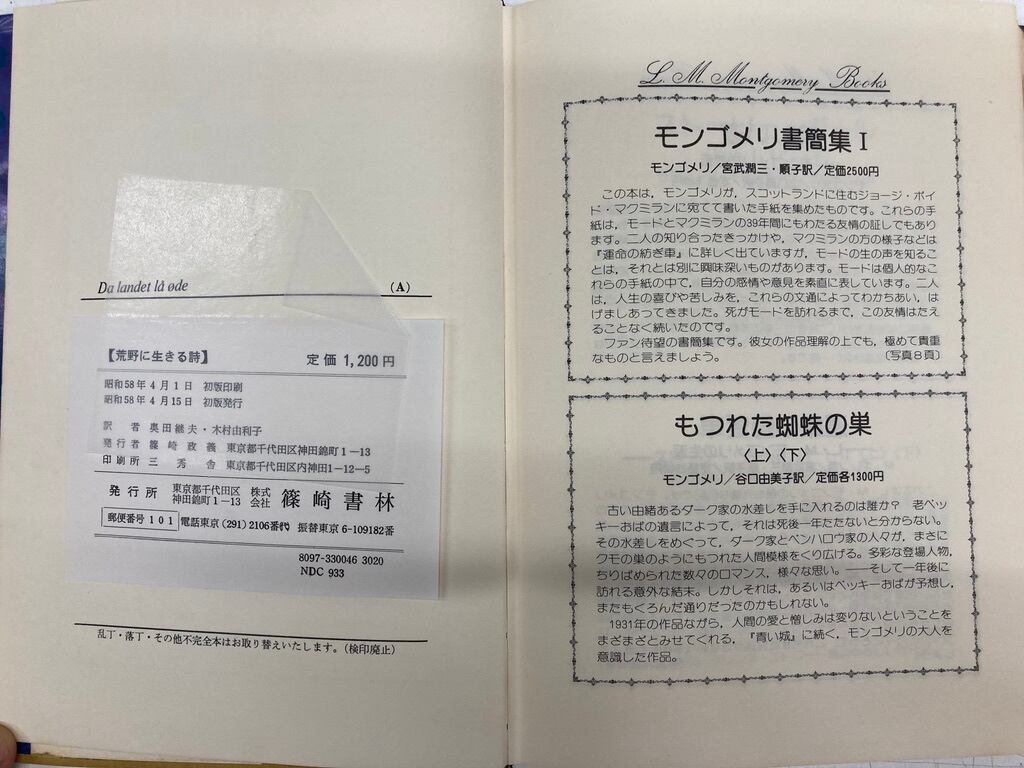 Da landet lå øde (A)
【荒野に生きる詩】 定価 1,200円
昭和58年4月1日 初版印刷
昭和58年4月15日 初版発行
訳者 奥田継夫・木村由利子
発行者 篠崎政義 東京都千代田区神田錦町1-13
印刷所 三秀舎 東京都千代田区内神田1-12-5
発行所 東京都千代田区神田錦町1-13 株式会社 篠崎書林
郵便番号 101 電話東京(291)2106番代 振替東京6-109182番
8097-330046 3020
NDC 933
乱丁・落丁・その他不完全本はお取り替えいたします。(検印廃止)
L. M. Montgomery Books
モンゴメリ書簡集 I
モンゴメリ/宮武潤三・順子訳/定価2500円
この本は,モンゴメリが,スコットランドに住むジョージ・ボイ
ド・マクミランに宛てて書いた手紙を集めたものです。これらの手
紙は,モードとマクミランの39年間にもわたる友情の証しでもあり
ます。二人の知り合ったきっかけや,マクミランの方の様子などは
『運命の紡ぎ車』に詳しく出ていますが,モードの生の声を知るこ
とは,それとは別に興味深いものがあります。モードは個人的なこ
れらの手紙の中で,自分の感情や意見を素直に表しています。二人
は,人生の喜びや苦しみを,これらの文通によってわかちあい,は
げましあってきました。死がモードを訪れるまで,この友情はたえ
ることなく続いたのです。
ファン待望の書簡集です。彼女の作品理解の上でも,極めて貴重
なものと言えましょう。 〔写真8頁〕
もつれた蜘蛛の巣
〈上〉〈下〉
モンゴメリ/谷口由美子訳/定価各1300円
古い由緒あるダーク家の水差しを手に入れるのは誰か? 老ベッ
キーおばの遺言によって,それは死後一年たたないと分からない。
その水差しをめぐって,ダーク家とペンハロウ家の人々が,まさに
クモの巣のようにもつれた人間模様をくり広げる。多彩な登場人物,
ちりばめられた数々のロマンス,様々な思い。――そして一年後に
訪れる意外な結末。しかしそれは,あるいはベッキーおばが予想し,
またもくろんだ通りだったのかもしれない。
1931年の作品ながら,人間の愛と憎しみは変りないということを
まざまざとみせてくれる,『青い城』に続く,モンゴメリの大人を
意識した作品。